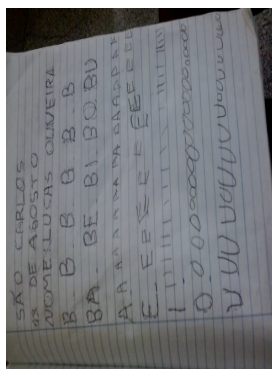 SÃO CARLOS
DE AGOSTO
NOME: LUCAS OLIVEIRA
B B B B B B
BA BE BI BO BU
A A A A A A A A A A A A A A A
E E E E E E E E E E E E E
I I I I I I I I I I I I I I I
O O O O O O O O O O O O O O O O
U U U U U U U U U U U U